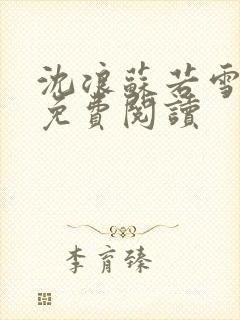 沈浪蘇若雪
免費閱讀
李育臻